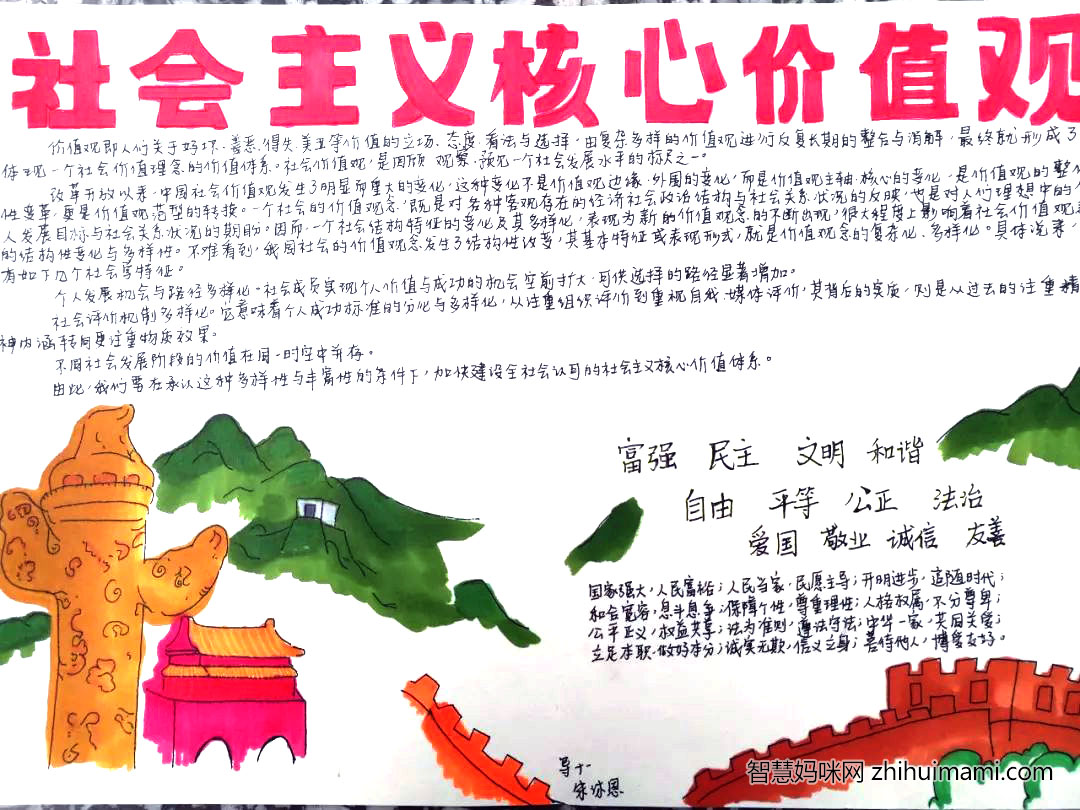 社会主义核心价值观
价值观即人们关于好坏、善恶、得失、美丑等价值的立场、态度、看法与选择，由复杂多样的价值观进行反复长期的整合与消解，最终就形成了
体现一个社会价值理念的价值体系。社会价值观，是 观察、预见一个社会发展水平的标尺之一。
改革开放以来，中国社会价值观发生了明显而重大的变化，这种变化不是价值观边缘、外围的变化，而是价值观主轴、核心的变化，是价值观的整
性变革，更是价值观范型的转换。一个社会的价值观念，既是对各种客观存在的经济社会政治结构与社会关系状况的反映，也是对人们理想中的
人发展目标与社会关系状况的期盼。因而，一个社会结构特征的变化及其多样化，表现为新的价值观念的不断出现，很大程度上影响着社会价值观
的结构性变化与多样性。不难看到，我国社会的价值观念发生了结构性改变，其基本特征或表现形式，就是价值观念的复杂化、多样化。具体说来，
有如下几个社会学特征。
个人发展机会与路径多样化。社会成员实现个人价值与成功的机会空前扩大，可供选择的路径显著增加。
社会评价机制多样化。它意味着个人成功标准的分化与多样化，从注重组织评价到重视自我、媒体评价，其背后的实质，则是从过去的注重精
神内涵转向更注重物质效果。
不同社会发展阶段的价值在同一时空中并存。
由此，我们要在承认这种多样性与丰富性的条件下，加快建设全社会认可的社会主义核心价值体系。
富强 民主 文明 和谐
自由 平等 公正 法治
爱国 敬业 诚信 友善
国家强大，人民富裕；人民当家，民愿主导；开明进步，追随时代；
和合宽容，息斗息争；保障个性，尊重理性；人格权属，不分尊卑；
公平正义，权益共享；法为准则，遵法守法；中华一家，共同关爱；
立足本职，做好本分；诚实无欺，信义立身；善待他人，博爱友好。
导十一
智慧妈咪网 zhihuimami.com